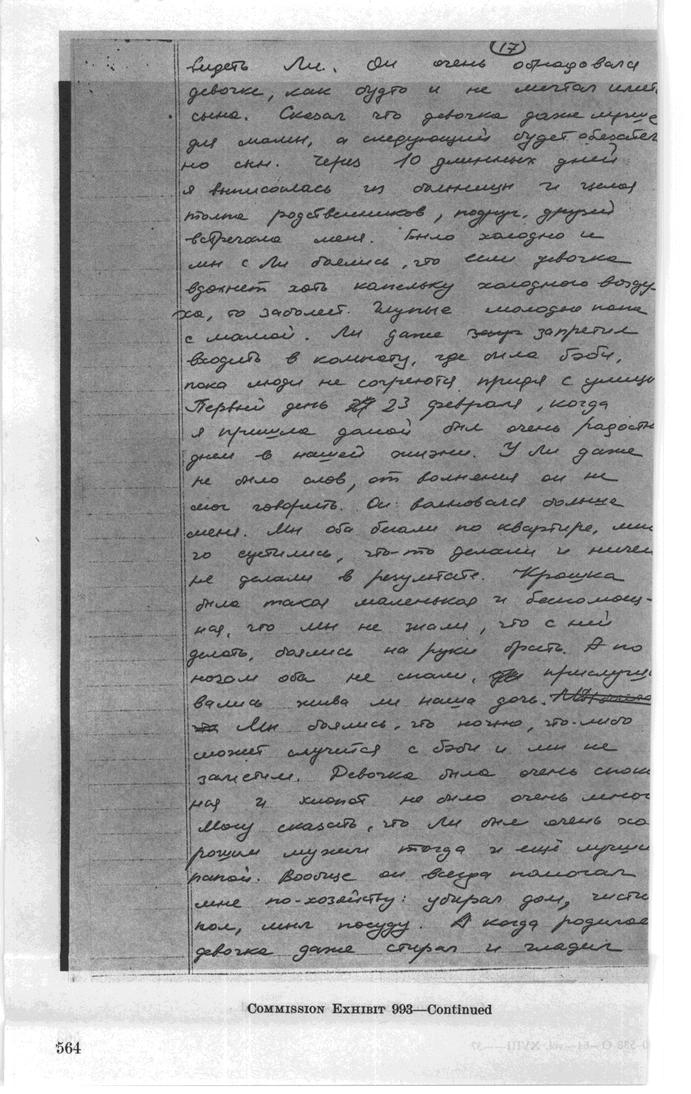 17
видеть Ли. Он очень обрадовался
девочке, как будто и не мечтал иметь
сына. Сказал что девочка даже лучше
для мамы, а следующий будет обязатель
но сын. Через 10 длинных дней
я выписалась из больницы и целая
толпа родственников, подруг, друзей
встречала меня. Было холодно и
мы с Ли боялись, что если девочка
вдохнет хоть капельку холодного возду-
ха, то заболеет. Глупые молодые папа
с мамой. Ли даже запретил
входить в комнату, где была бэби,
пока люди не согреются, придя с улицы
Первый день 23 февраля, когда
я пришла домой был очень радостн
днем в нашей жизни. У Ли даже
не было слов, от волнения он не
мог говорить. Он волновался больше
меня. Мы оба бегали по квартире, мно
го суетились, что-то делали и ничего
не делали в результате. Крошка
была такая маленькая и беспомощ-
ная, что мы не знали, что с ней
делать, боялись на руки брать. А по
ночам оба не спали, прислуши
вались жива ли наша дочь.
Мы боялись, что ночью, что-либо
может случится с бэби и мы не
заметим. Девочка была очень спокой
ная и хлопот не было очень много
Могу сказать, что Ли был очень хо
рошим мужем тогда и ещё лучшим
папой. Вообще он всегда помогал
мне по-хозяйству: убирал дом, чисти
пол, мыл посуду. А когда родилась
девочка даже стирал и гладил
COMMISSION EXHIBIT 993—Continued
564